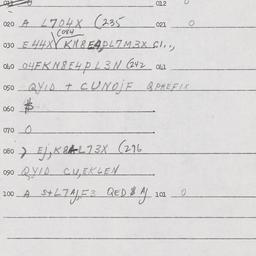 012 0
020 A L704X (235 021 0
(084
030 E44X√KN8EA,PL7M3X CI..,
040 04FKN8E4PL3N (242 041
050 QYID + CUNOJF QPREFIX
060 $
070 0
080 ) EJ,K8AL73X (276
090 QYID CU,EKLEN
100 A S+L7AJ,F3 QED$AJ 101 0